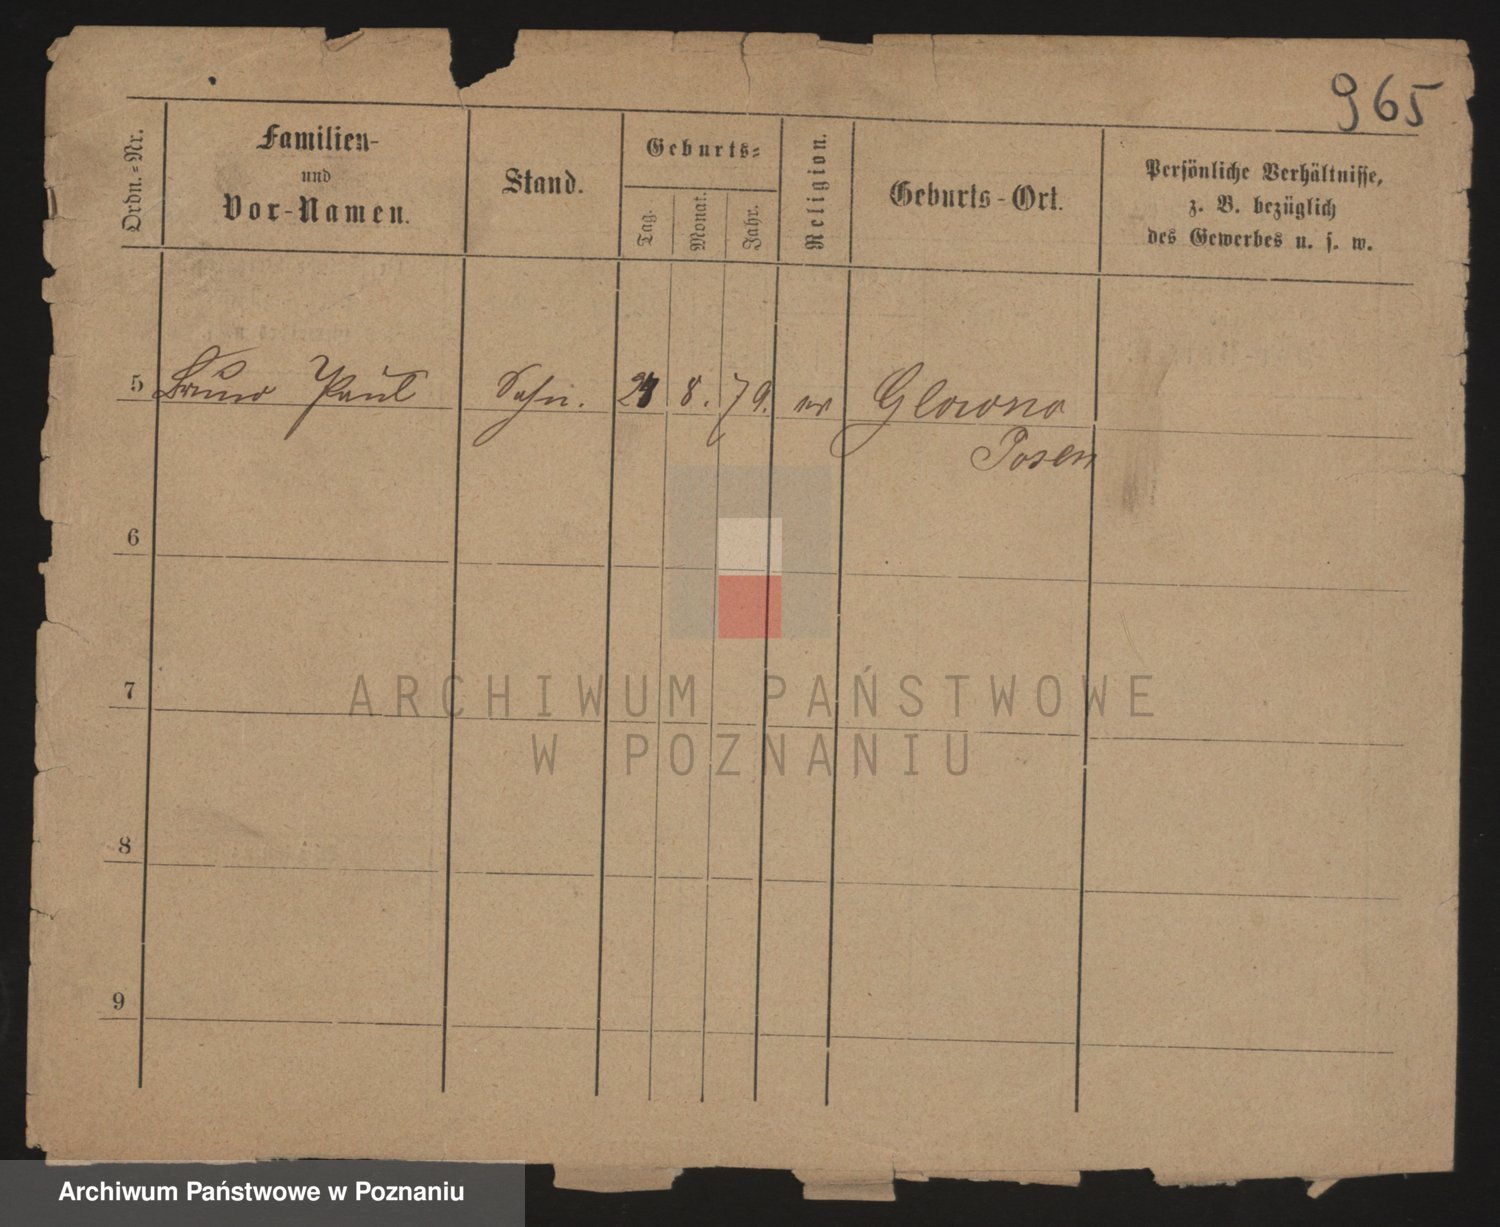 965
Ordn.-Nr.
Familien-
und
Vor-Namen.
Stand.
Geburts-
Tag.
Monat.
Jahr.
Religion.
Geburts-Ort.
Persönliche Verhältnisse,
z. B. bezüglich
des Gewerbes u. s. w.
5 Bruno Paul Sohn. 8. 79. ev Glowno
Posen
6
7
8
9
ARCHIWUM PAŃSTWOWE
W POZNANIU
Archiwum Państwowe w Poznaniu